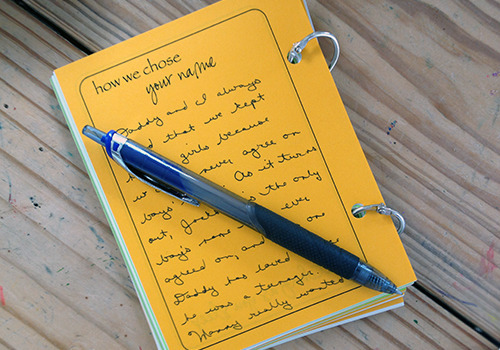 how we chose
your name
Daddy and I always
that we kept
girls because
never agree on
boys. As it turns
out, is the only
boy's name ever
agreed on, and
Daddy has loved
he was a teenager.
Mommy really wanted